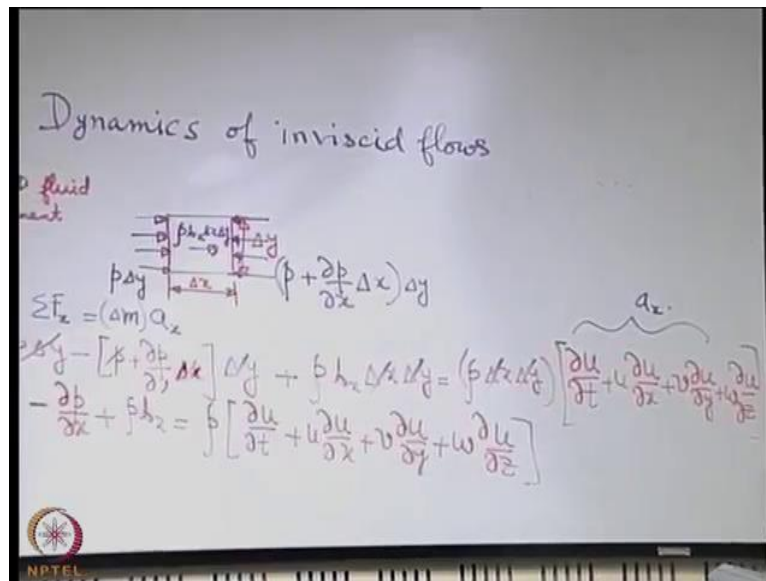 Dynamics of inviscid flows
fluid
ρ b_x Δx Δy
Δy
Δx
pΔy
(p + ∂p/∂x Δx) Δy
ΣF_x = (Δm) a_x
a_x.
Δy - [p + ∂p/∂x, Δx] Δy + ρ b_x Δx Δy = (ρ Δx Δy) [∂u/∂t + u ∂u/∂x + v ∂u/∂y + w ∂u/∂z]
- ∂p/∂x + ρ b_x = ρ [∂u/∂t + u ∂u/∂x + v ∂u/∂y + w ∂u/∂z]
NPTEL